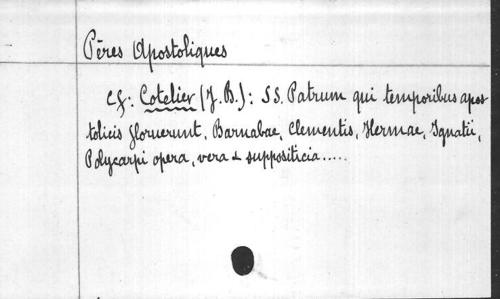 Pères Apostoliques
cf: Cotelier (J.B.): SS. Patrum qui temporibus apos
tolicis floruerunt, Barnabae, Clementis, Hermae, Ignatii,
Polycarpi opera, vera & suppositicia.....